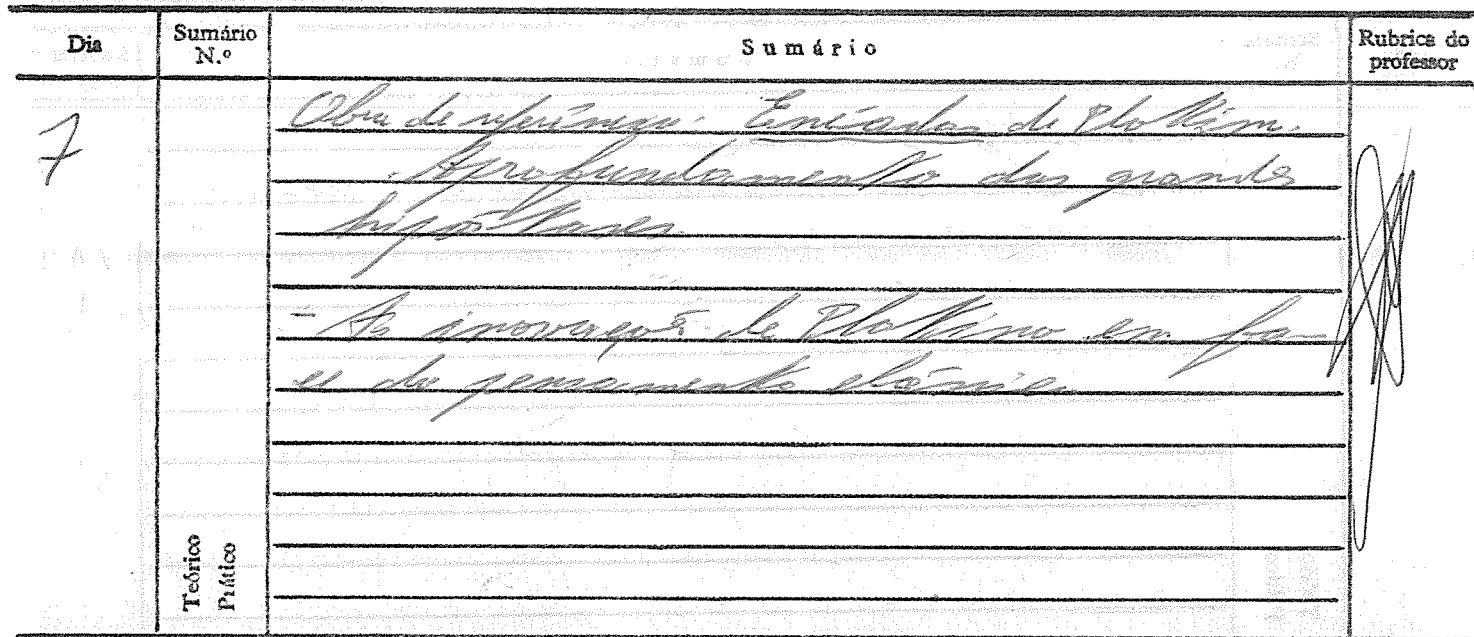 Dia
Sumário
N.º
Sumário
Rubrica do
professor
7
Obra de referência. Enéadas de Plotino.
. Aprofundamento das grandes
hipóstases.
- As inovações de Plotino em fa-
ce do pensamento platónico
Teórico
Prático